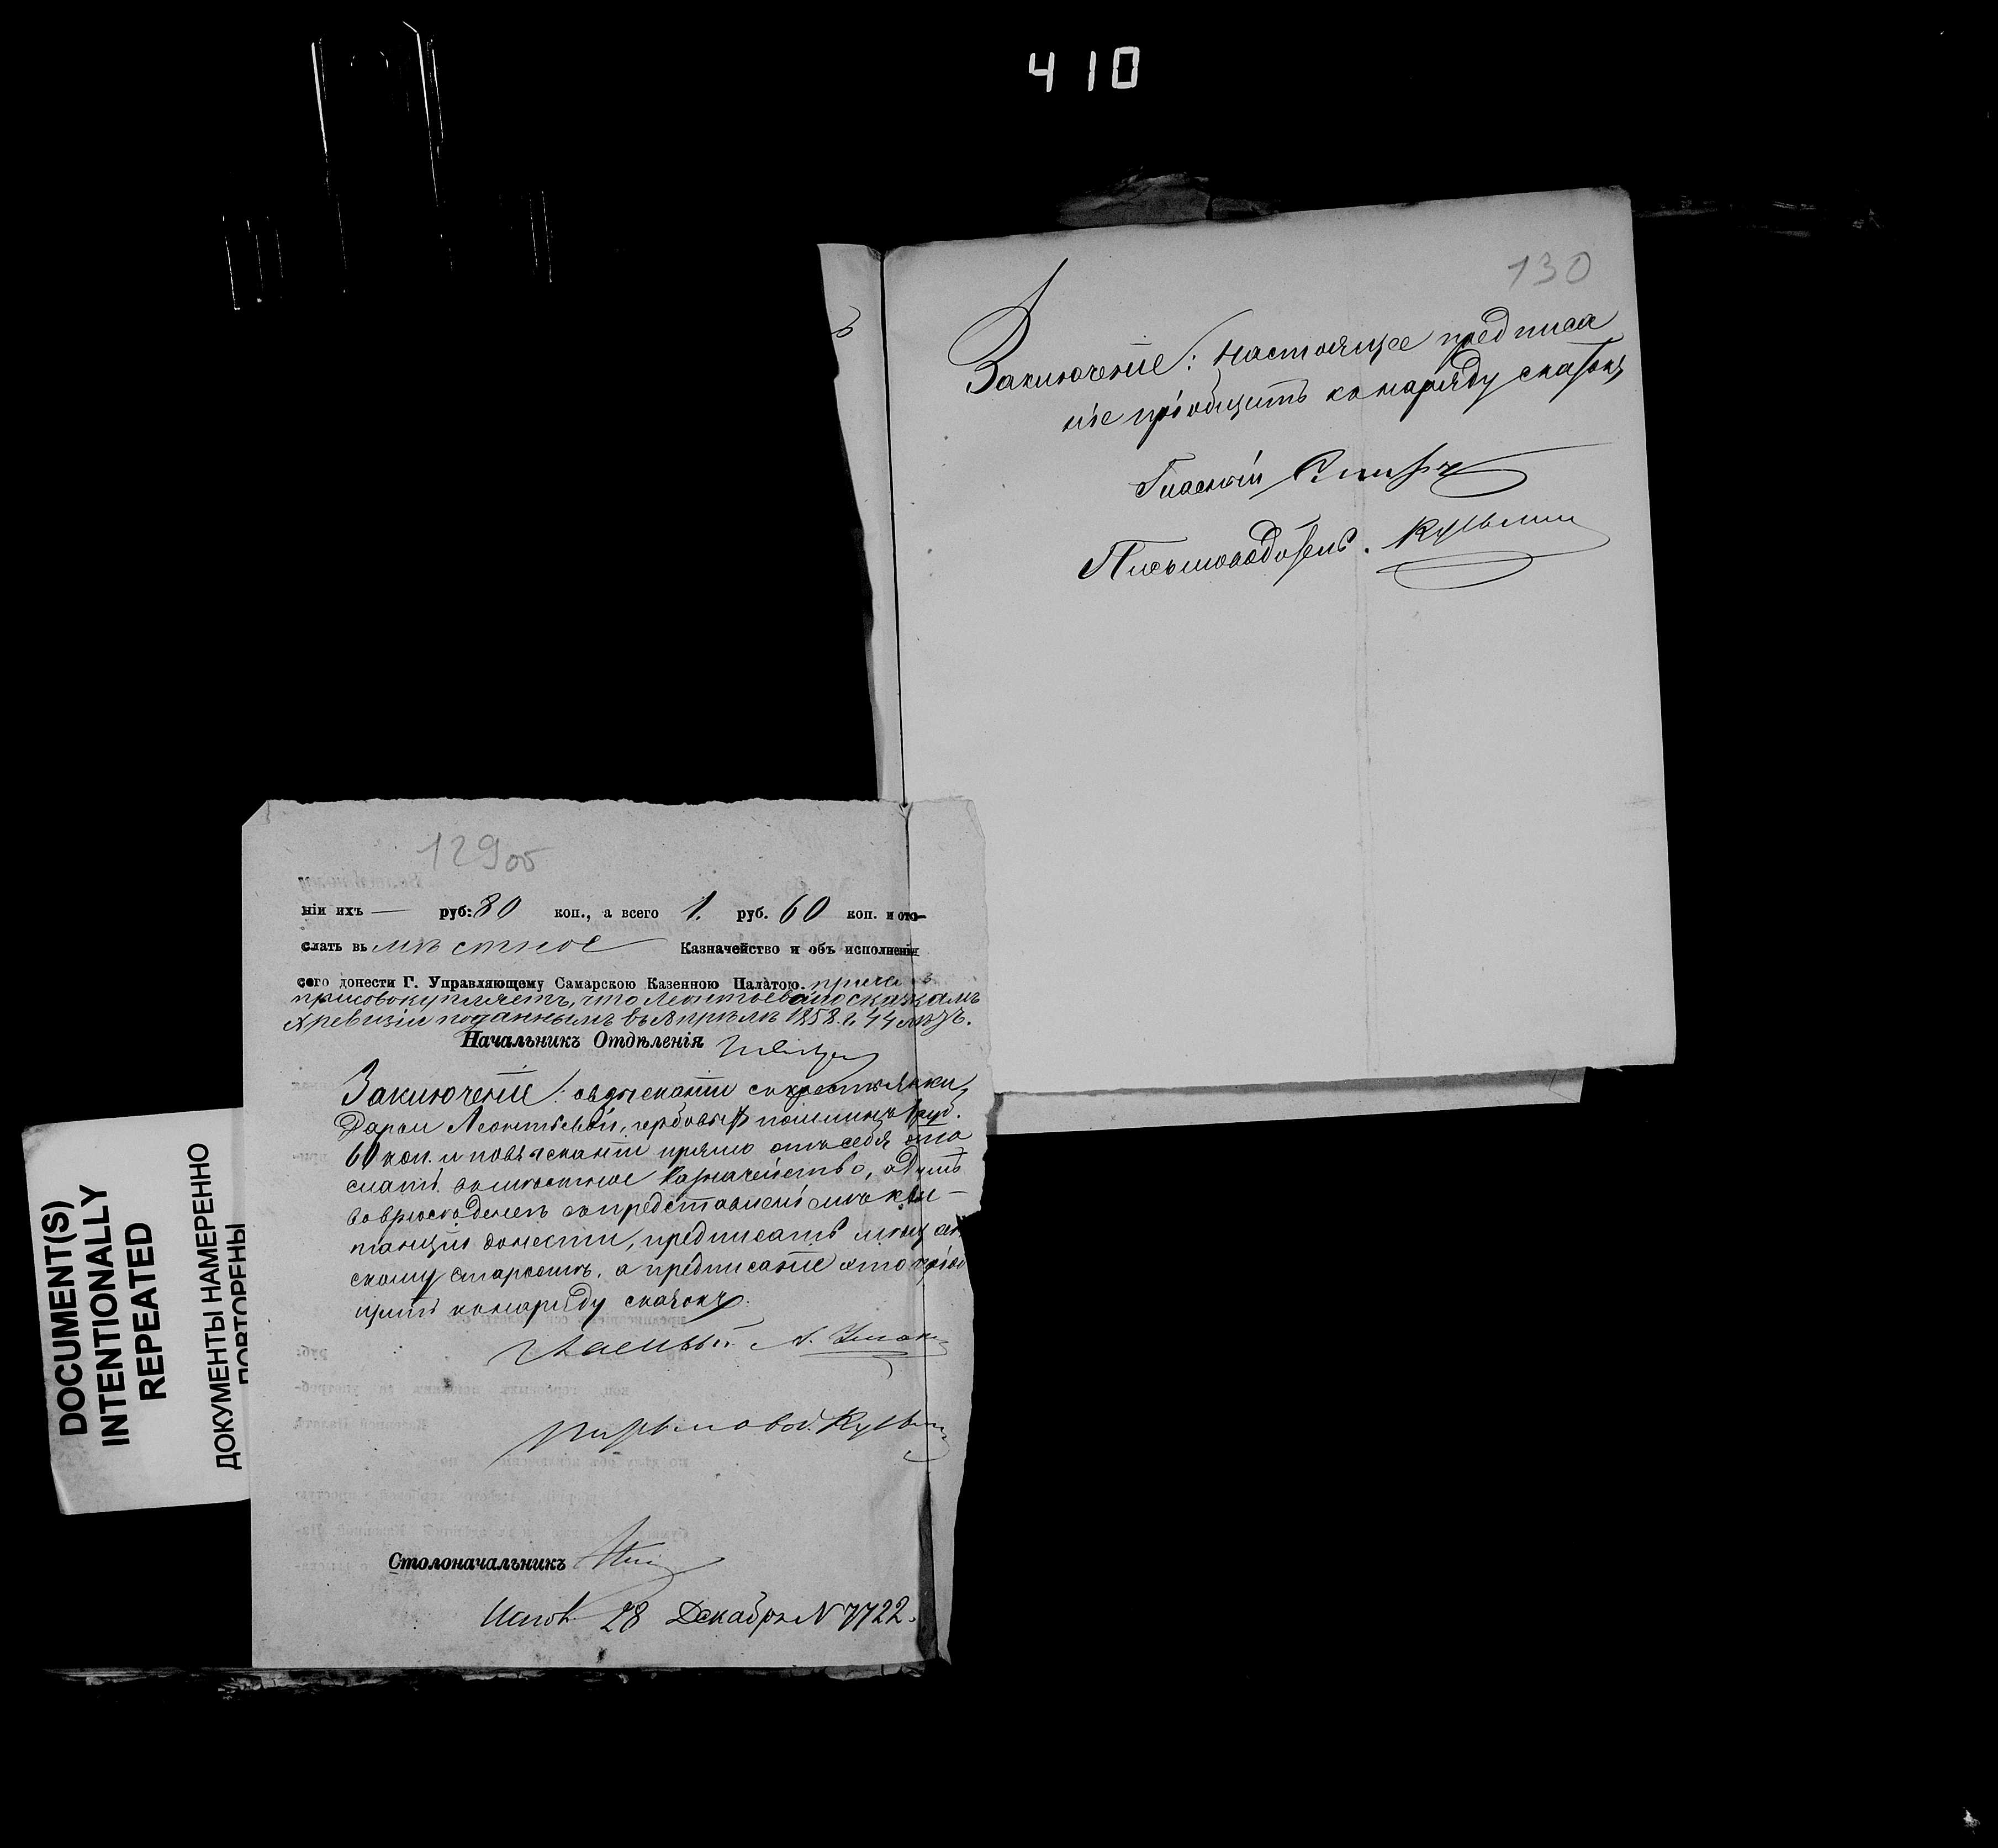 410
130
Заключеніе: настоящее предписа
ніе пріобщить къ наряду сказокъ
Гласный
Письмоводитель. Кузьмин
129об
ніи ихъ — руб: 80 коп., а всего 1. руб. 60 коп. и ото-
слать въ мѣстное Казначейство и объ исполненіи
сего донести Г. Управляющему Самарскою Казенною Палатою. при чемъ
присовокупляетъ, что Леонтьева по сказкамъ
X ревизіи поданнымъ въ Апрѣлѣ 1858 г. 44 лѣтъ.
Начальникъ Отдѣленія
Заключеніе: съ крестьянки
Дарьи Леонтьевой, гербовыхъ пошлинъ 1 руб.
60 коп. и по взысканіи прямо отъ себя ото
слать въ мѣстное Казначейство, а думѣ
съ представленіемъ кви-
танціи донести, предписать
скому старостѣ, а предписаніе это пріоб
щить къ наряду сказокъ.
Гласный
Письмовод. Кузьмин
Столоначальникъ
Испол. 28 Декабря N 7722.
DOCUMENT(S)
INTENTIONALLY
REPEATED
ДОКУМЕНТЫ НАМЕРЕННО
ПОВТОРЕНЫ